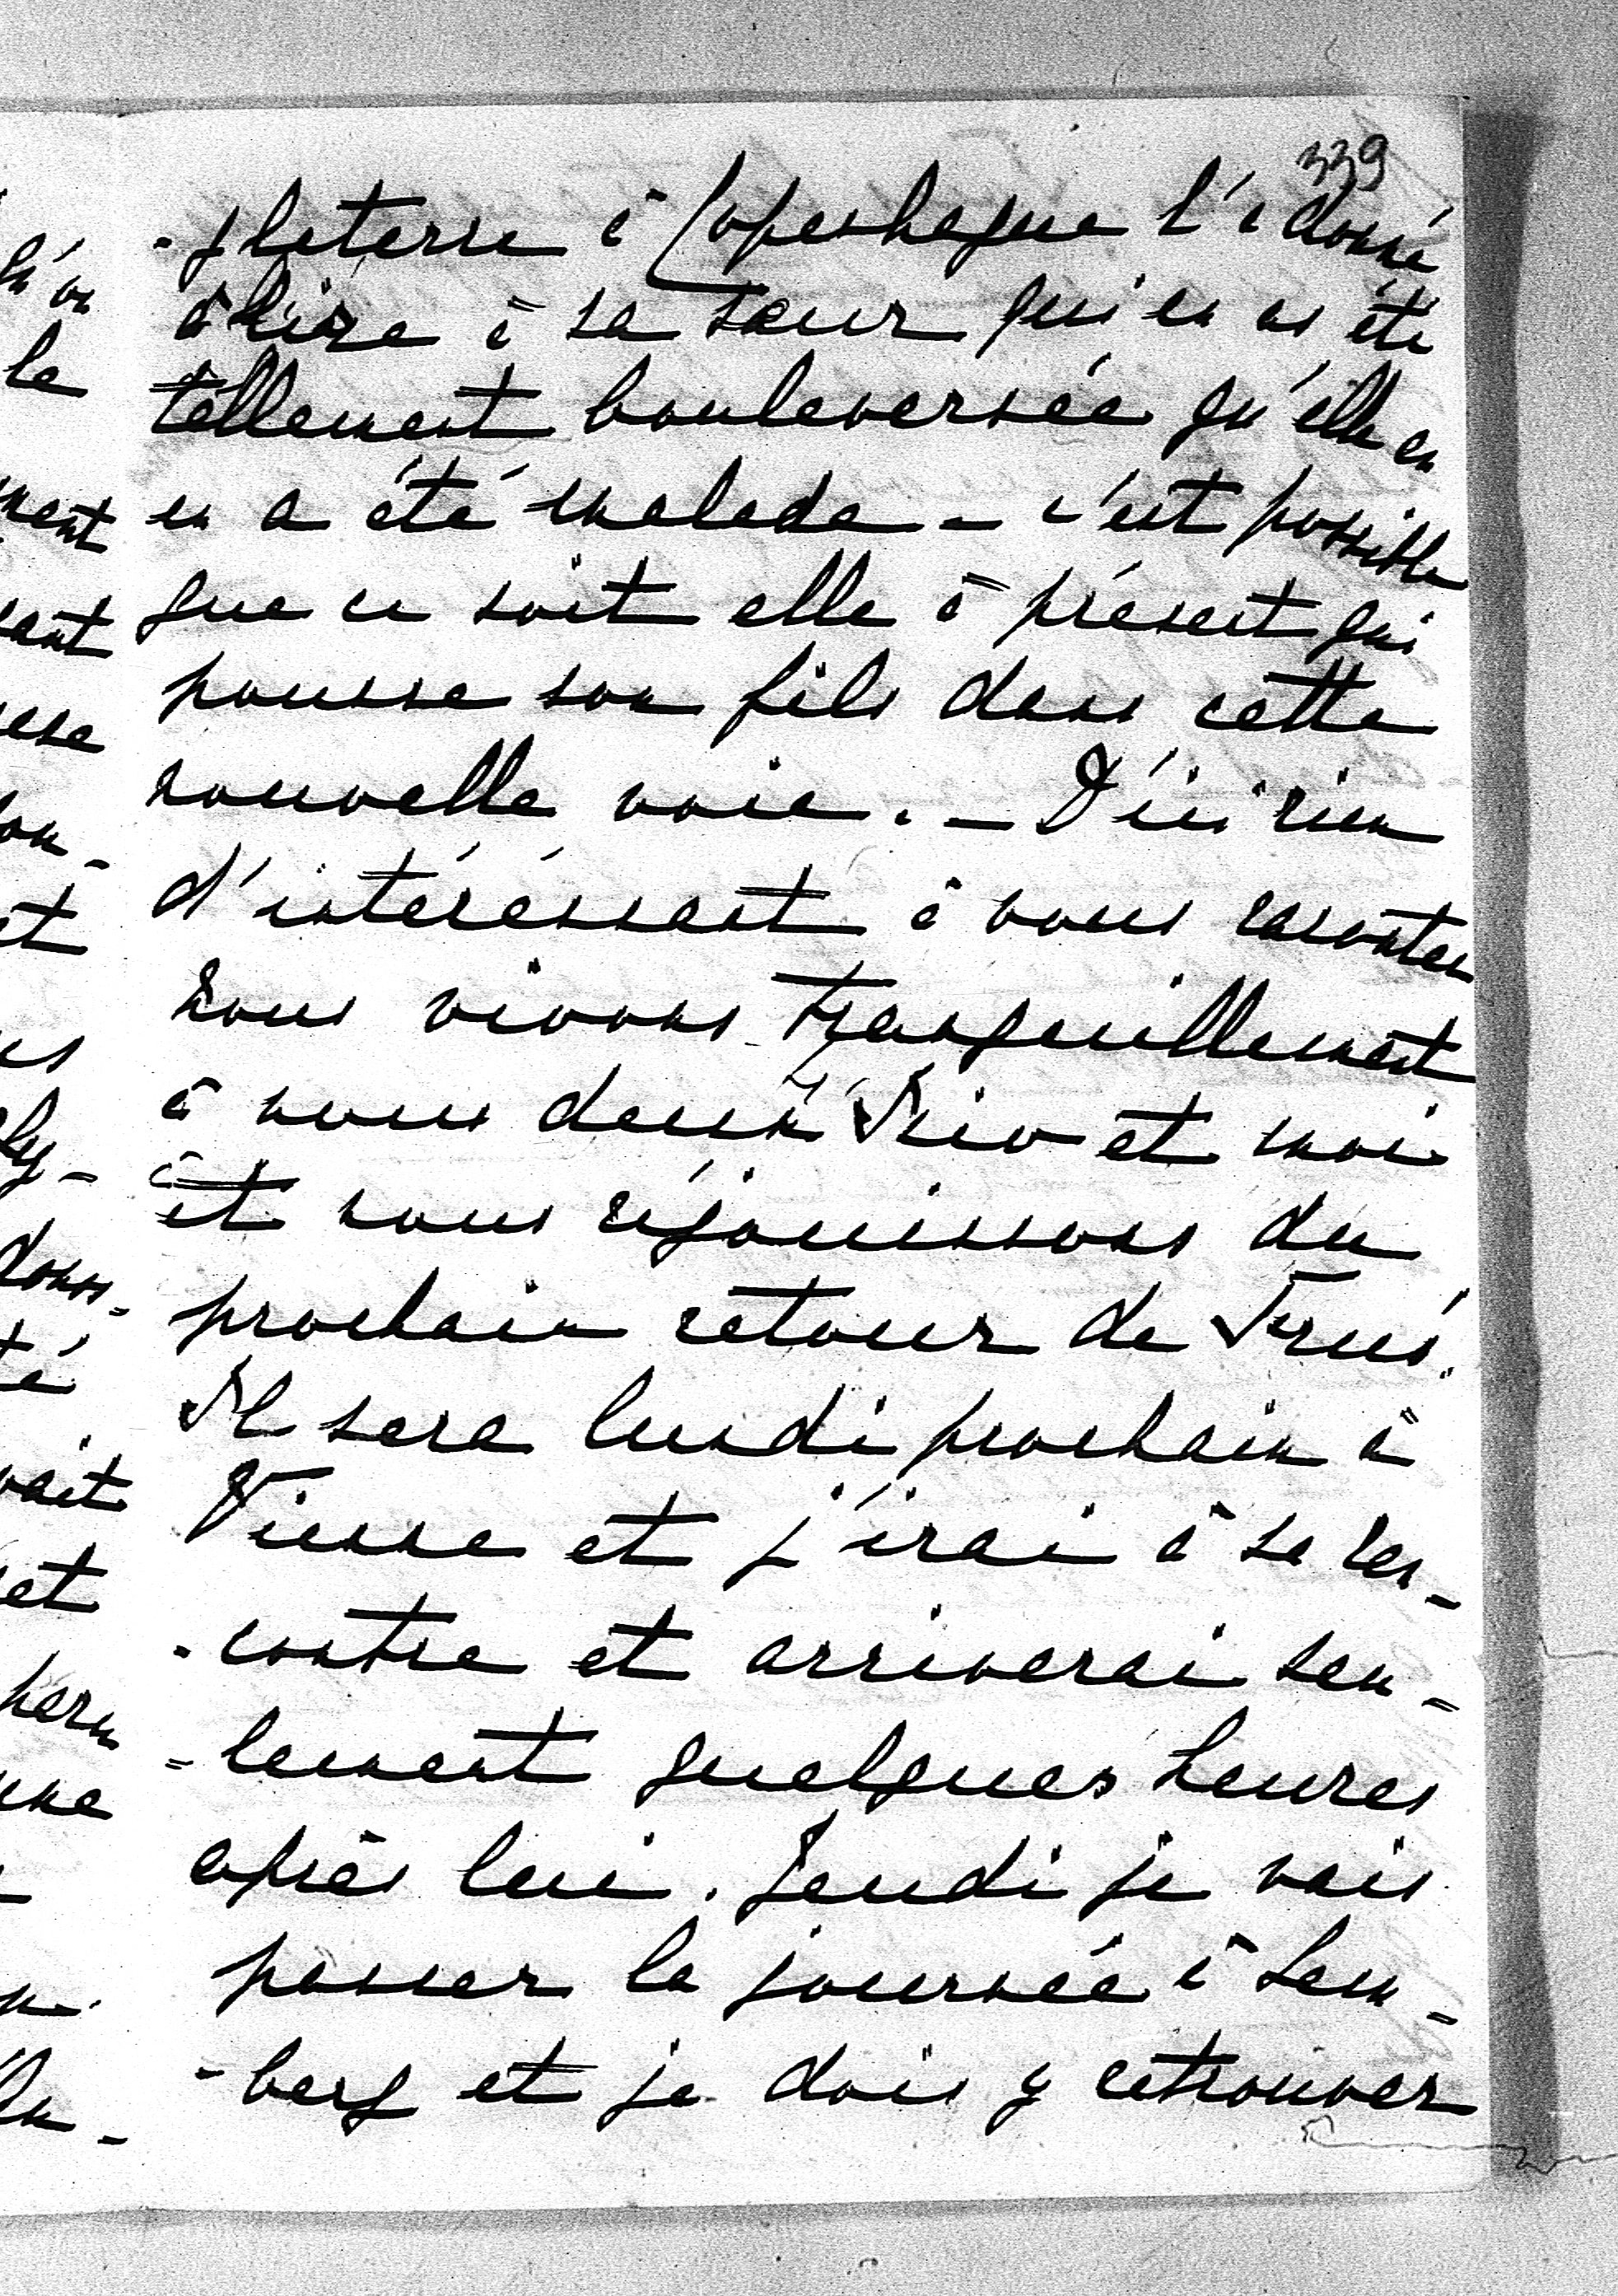 339
-gleterre à Copenhague l'a donné
à lire à sa sœur qui en as été
tellement bouleversée qu'elle en
en a été malade - c'est possible
que ce soit elle à présent qui
pousse son fils dans cette
nouvelle voie. - D'ici rien
d'intéréssant à vous raconter
nous vivons tranquillement
à nous deux et moi
et nous réjouissons du
prochain retour de
Il sera lundi prochain à
Vienne et j'irai à sa ren-
-contre et arriverai seu-
-lement quelques heures
après lui. Jeudi je vais
passer la journée à Lem-
-berg et je dois y retrouver